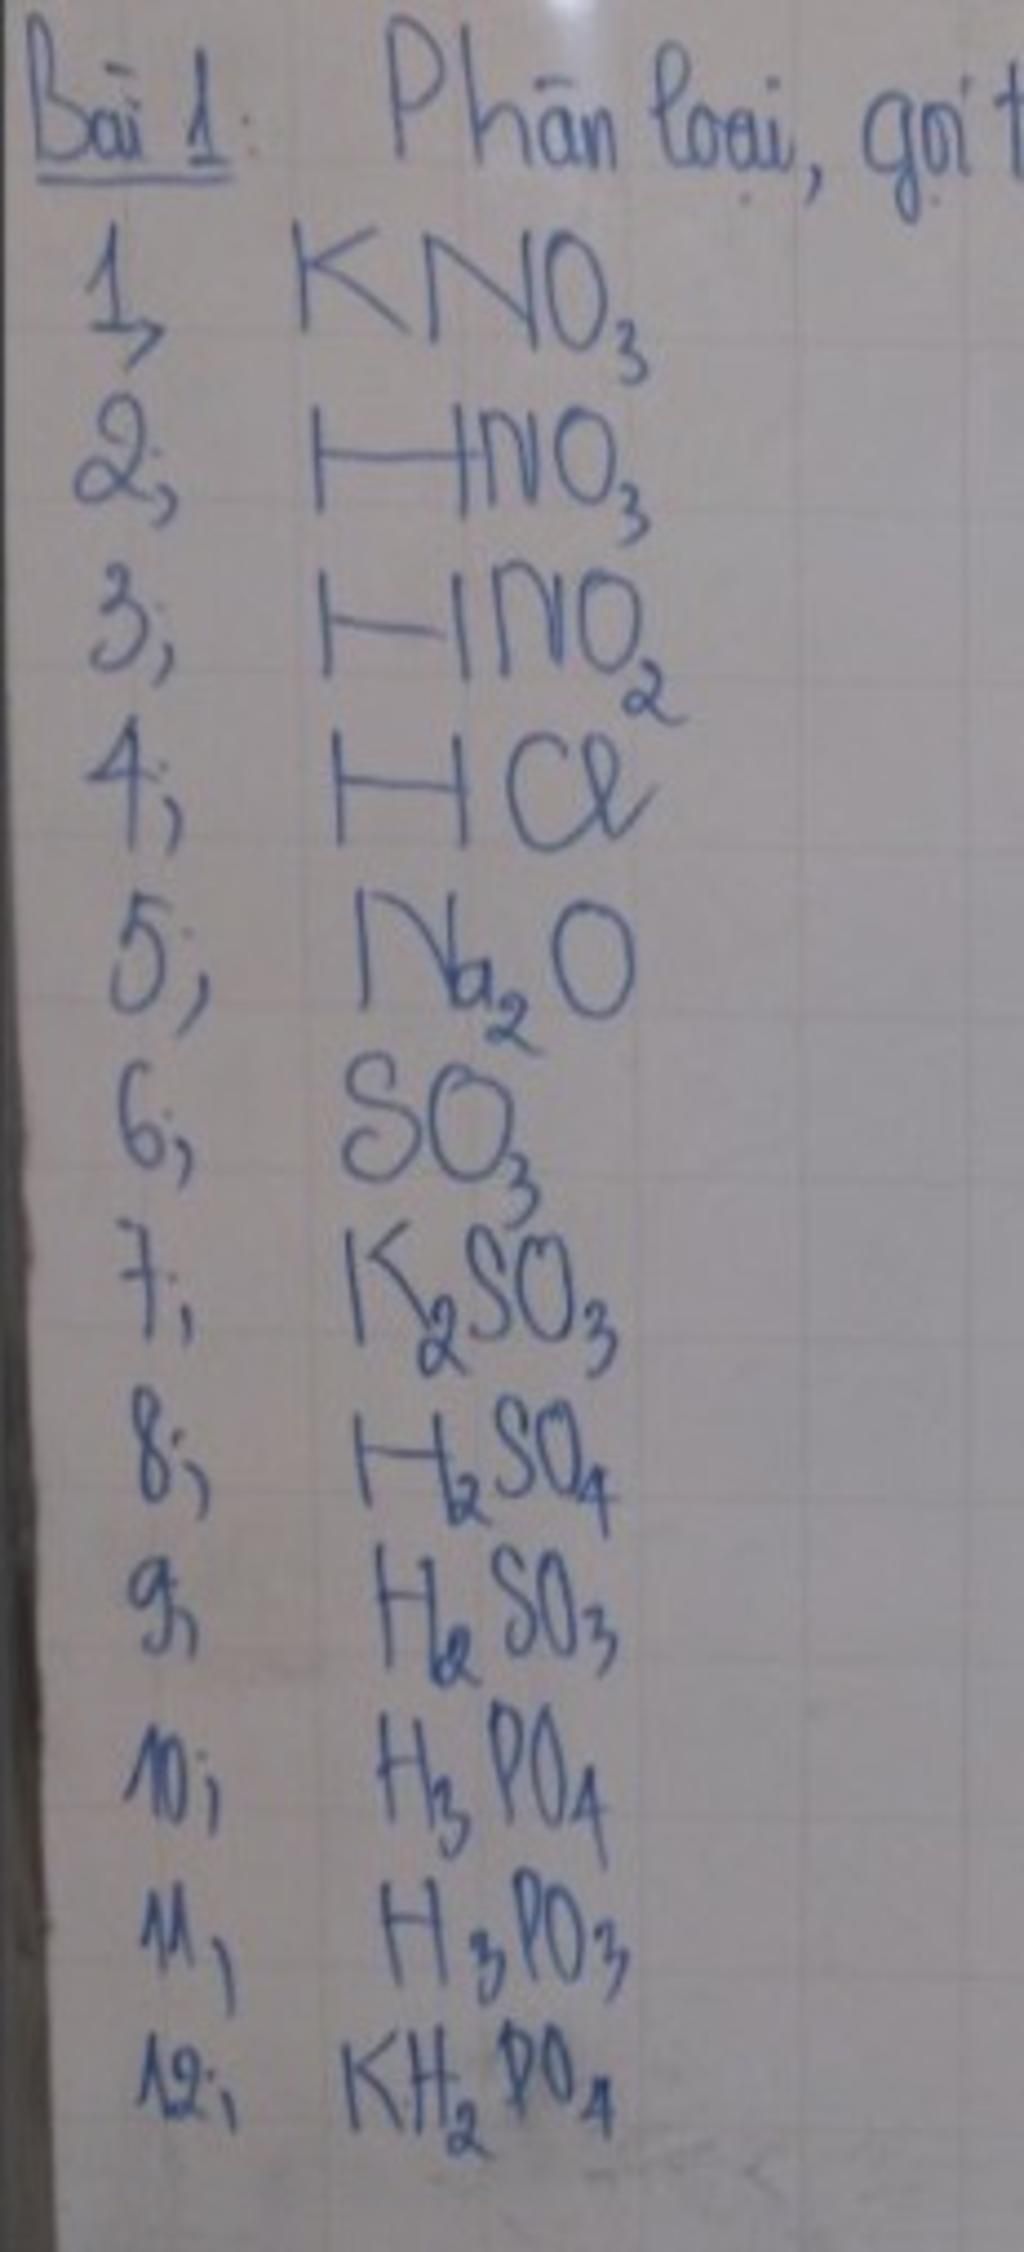 Bài 1: Phân loại, gọi t
1, KNO₃
2, HNO₃
3, HNO₂
4, HCl
5, Na₂O
6, SO₃
7, K₂SO₃
8, H₂SO₄
9, H₂SO₃
10, H₃PO₄
11, H₃PO₃
12, KH₂PO₄